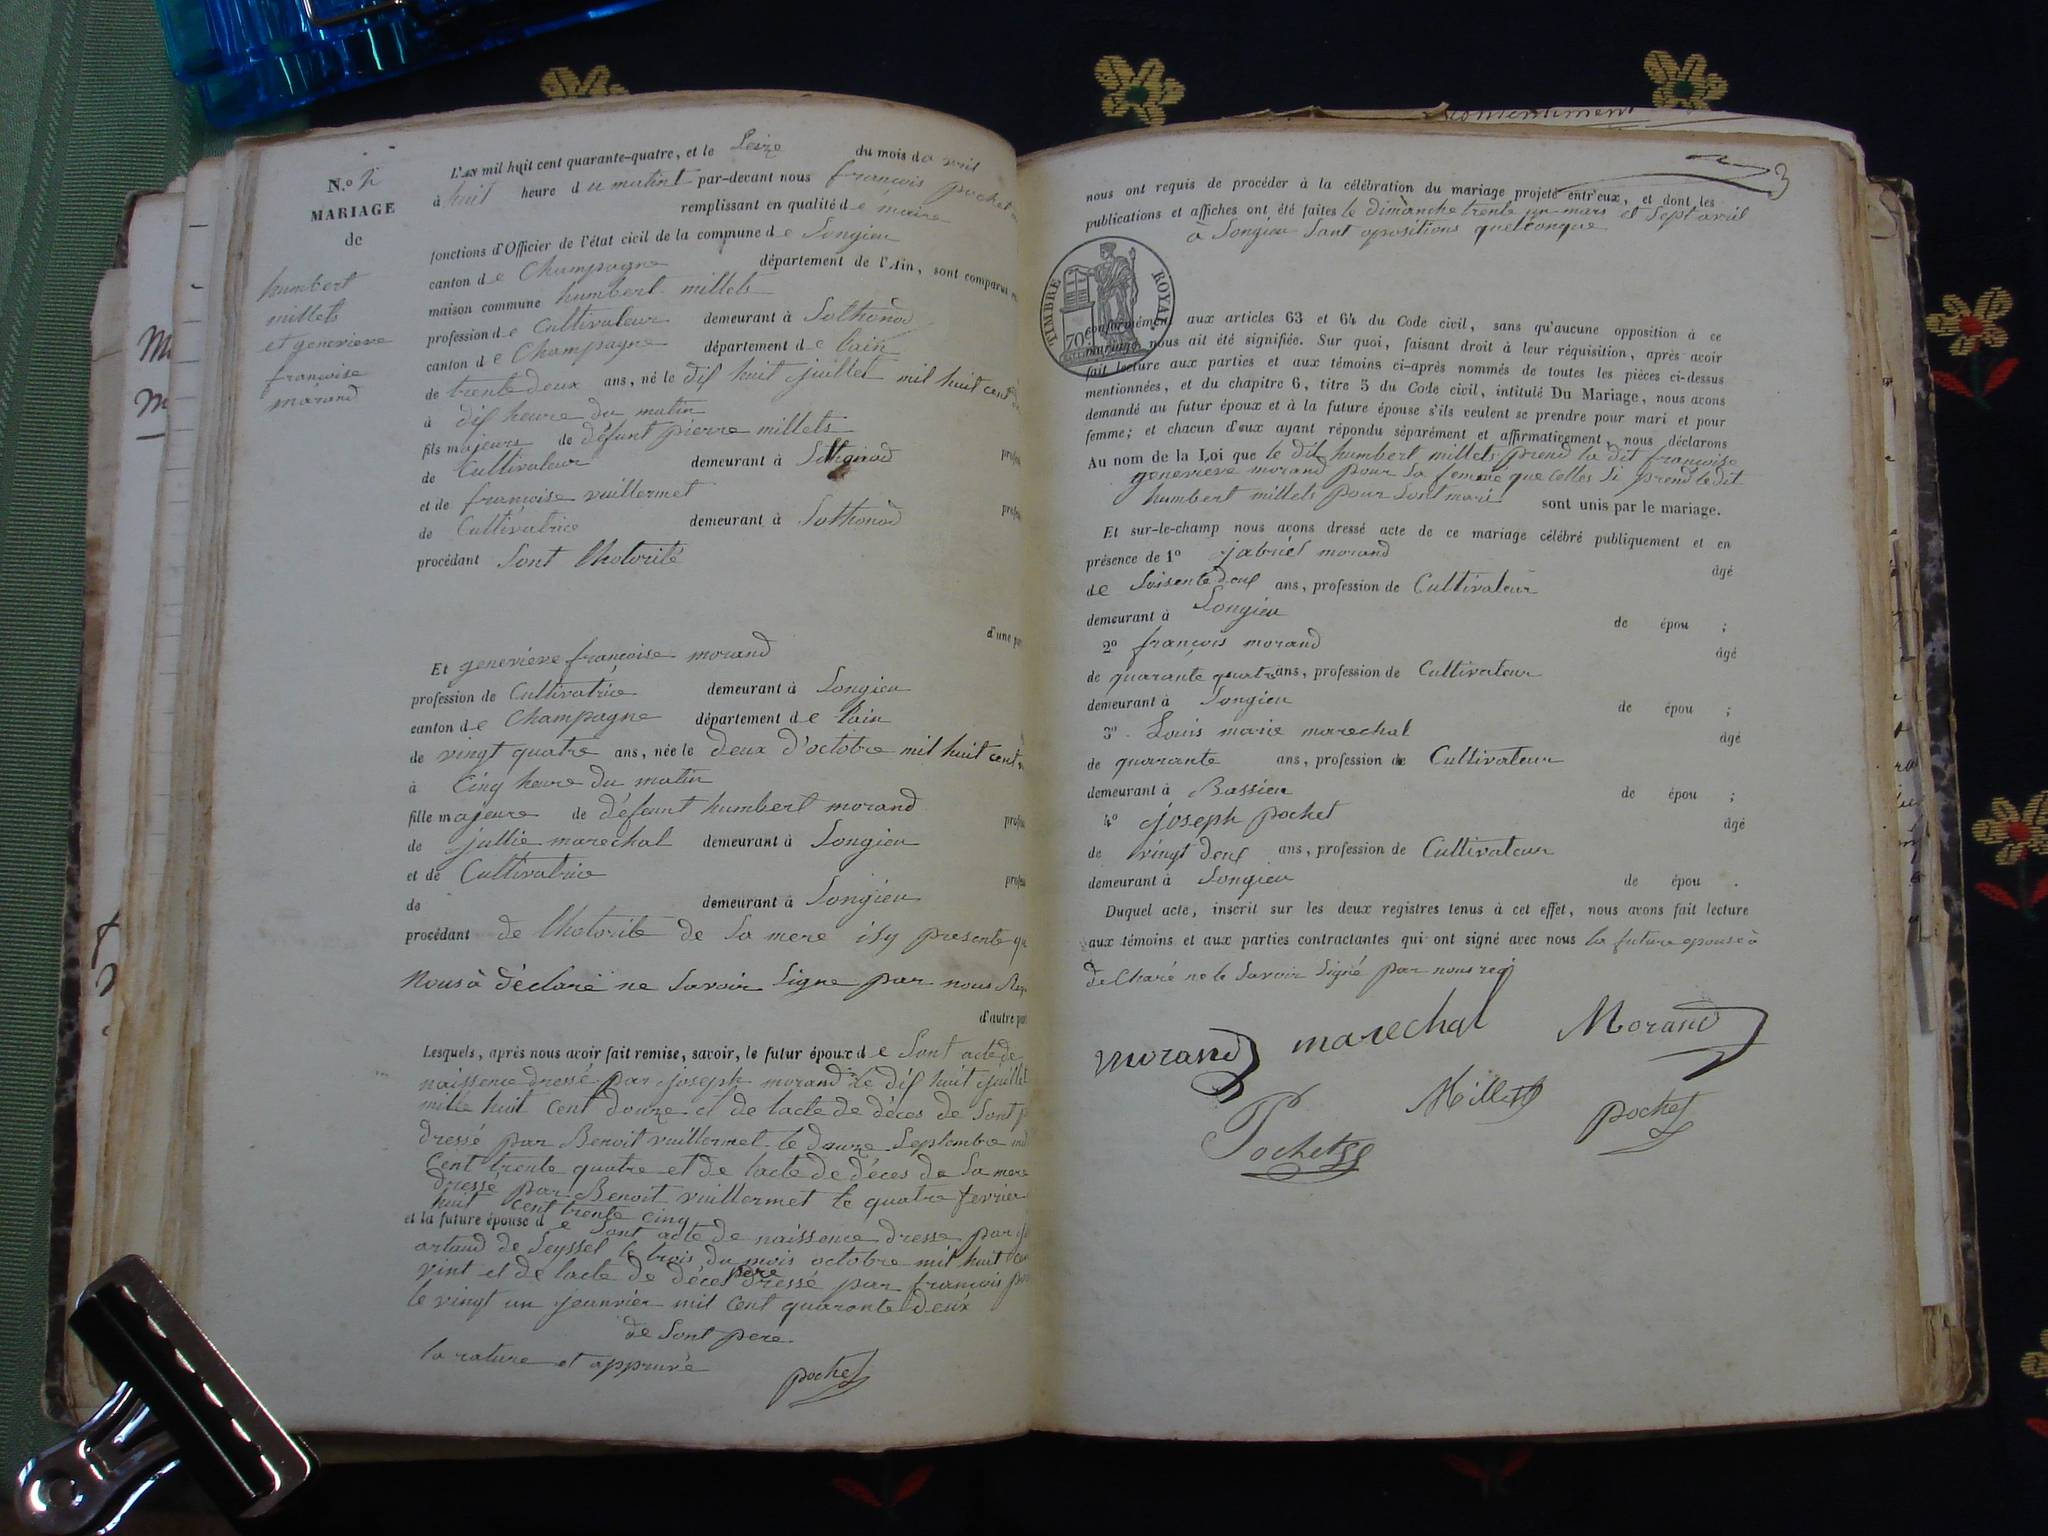 N.o 2
MARIAGE
de
humbert
millets
et genevieve
françoise
morand
L'AN mil huit cent quarante-quatre, et le Seize du mois d'avril
à huit heure du matint par-devant nous françois pochet
remplissant en qualité de maire
fonctions d'Officier de l'état civil de la commune de Songieu
canton de Champagne département de l'Ain, sont comparus
maison commune humbert millets
profession de Cultivateur demeurant à Sothonod
canton de Champagne département de lain
de trente deux ans, né le dif huit juillet mil huit cent
à dif heure du matin
fils majeurs de défunt pierre millets
de Cultivateur demeurant à Sothonod
et de françoise vuillermet
de Cultivatrice demeurant à Sothonod
procédant Sont lhotorité
d'une
Et genevieve françoise morand
profession de Cultivatrice demeurant à Songieu
canton de Champagne département de lain
de vingt quatre ans, née le deux d'octobre mil huit cent
à Cinq heure du matin
fille majeure de défunt humbert morand
de jullie marechal demeurant à Songieu
et de Cultivatrice
de demeurant à Songieu
procédant de lhotorité de Sa mere isy presente
Nous à déclaré ne Savoir Signe par nous
d'autre
Lesquels, après nous avoir fait remise, savoir, le futur époux de Sont acte de
naissence dressé par joseph morand le dif huit juillet
mille huit Cent douze et de lacte de déces de Sont
dressé par Benoit vuillermet le douze Septembre
Cent trente quatre et de lacte de déces de Sa mere
dressé par Benoit vuillermet le quatre fevrier
huit cent trente cinq
et la future épouse de Sont acte de naissence dresse par
artaud de Seyssel le trois du mois octobre mil huit
vint et de lacte de déces père dressé par françois
le vingt un jeanvier mil Cent quaronte deux
de Sont pere
la rature et appruvé pochet
3
nous ont requis de procéder à la célébration du mariage projeté entr'eux, et dont les
publications et affiches ont été faites le dimanche trente un mars et Sept avril
à Songieu Sant opositions quelconque
TIMBRE ROYAL
70c
conformément aux articles 63 et 64 du Code civil, sans qu'aucune opposition à ce
mariage nous ait été signifiée. Sur quoi, faisant droit à leur réquisition, après avoir
fait lecture aux parties et aux témoins ci-après nommés de toutes les pièces ci-dessus
mentionnées, et du chapitre 6, titre 5 du Code civil, intitulé Du Mariage, nous avons
demandé au futur époux et à la future épouse s'ils veulent se prendre pour mari et pour
femme; et chacun d'eux ayant répondu séparément et affirmativement, nous déclarons
Au nom de la Loi que le dit humbert millets prend la dit françoise
genevieve morand pour Sa femme que Celles Si prend le dit
humbert millets pour Sont mari sont unis par le mariage.
Et sur-le-champ nous avons dressé acte de ce mariage célébré publiquement et en
présence de 1o jabriel morand âgé
de Soisente deux ans, profession de Cultivateur
demeurant à Songieu de épou ;
2o françois morand âgé
de quarante quatre ans, profession de Cultivateur
demeurant à Songieu de épou ;
3o Louis marie marechal âgé
de quarante ans, profession de Cultivateur
demeurant à Bassieu de épou ;
4o joseph pochet âgé
de vingt deux ans, profession de Cultivateur
demeurant à Songieu de épou .
Duquel acte, inscrit sur les deux registres tenus à cet effet, nous avons fait lecture
aux témoins et aux parties contractantes qui ont signé avec nous la future epouse à
de Charé ne le Savoir Signé par nous req
morand marechal Morand
Pochet Millet pochet